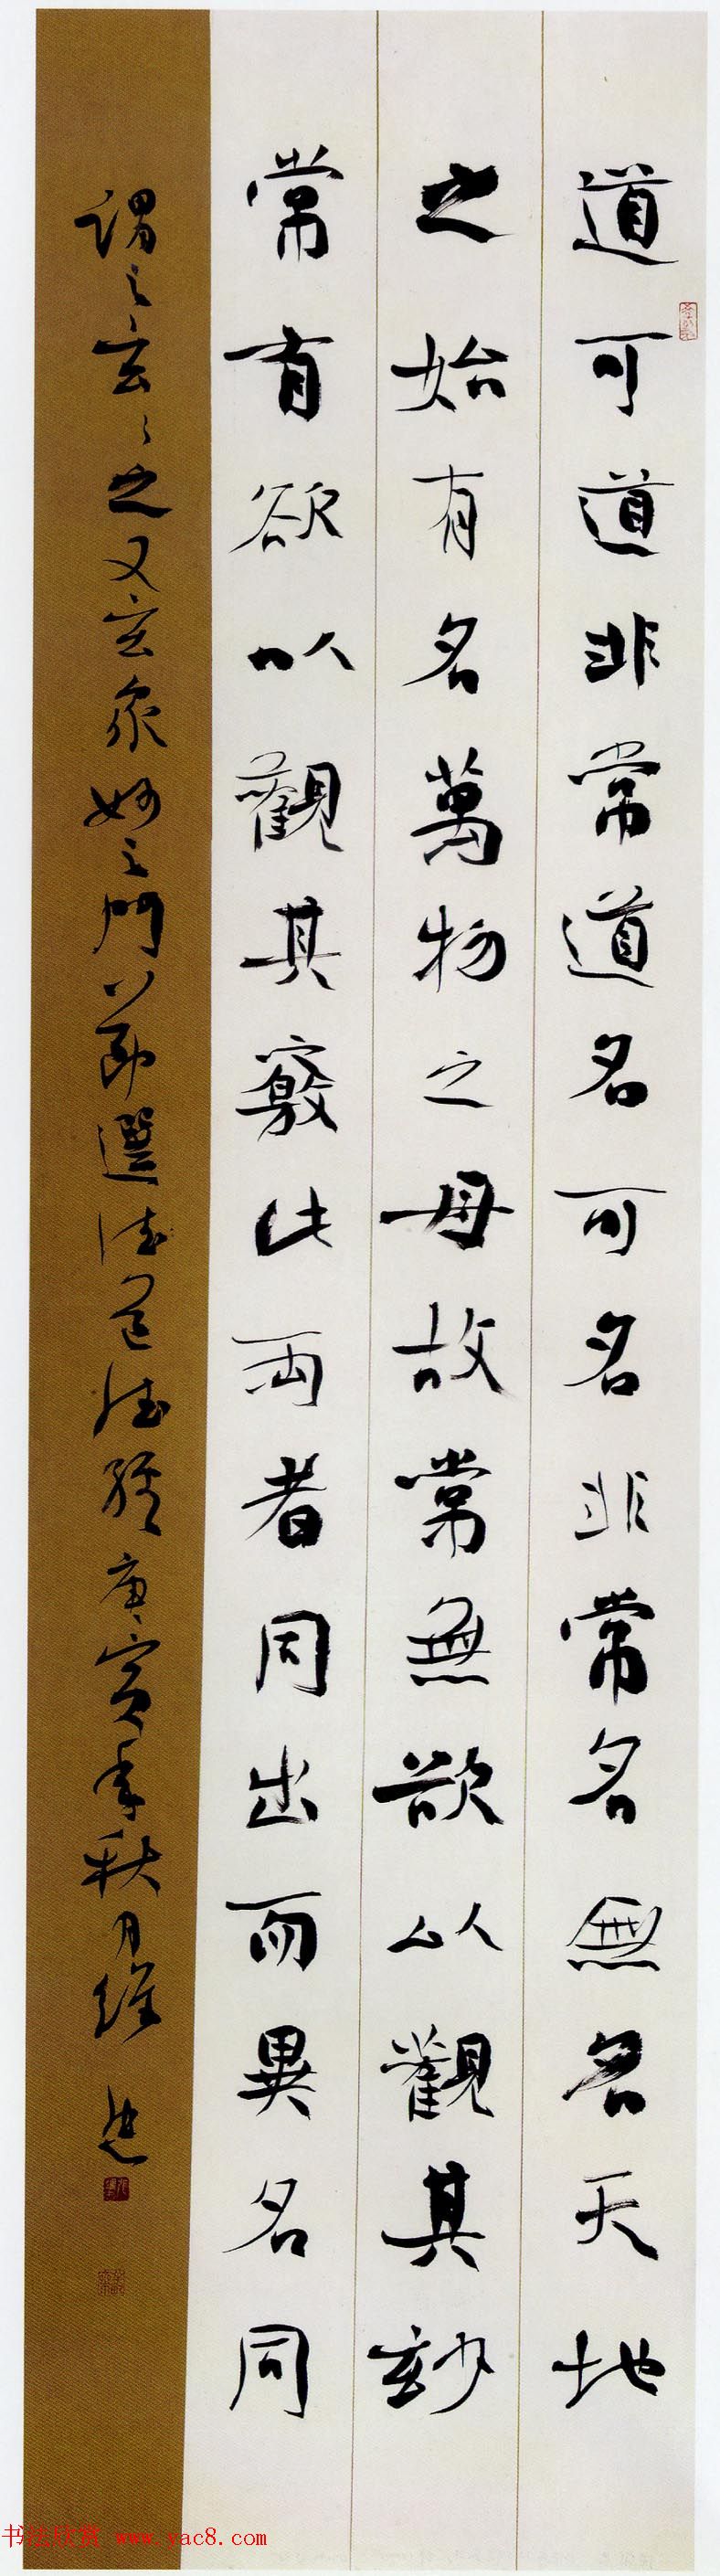 道可道非常道名可名非常名無名天地
之始有名萬物之母故常無欲以觀其玅
常有欲以觀其竅此兩者同出而異名同
謂之玄々之又玄衆妙之門節選道德經庚寅年秋月維
书法欣赏 www.yac8.com